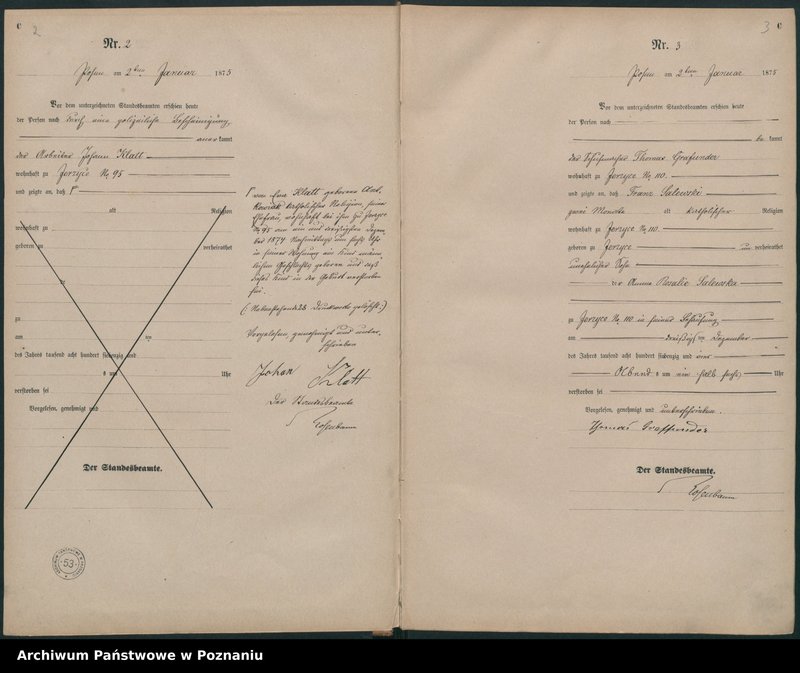 C
2
Nr. 2
Posen am 2ten Januar 1875
Vor dem unterzeichneten Standesbeamten erschien heute
der Person nach durch eine polizeiliche Bescheinigung
aner kannt
der Arbeiter Johann Klatt
wohnhaft zu Jerzyce No 95
und zeigte an, daß Γ
alt Religion
wohnhaft zu
geboren zu verheirathet
de
zu
am ten
des Jahres tausend acht hundert siebenzig und
s um Uhr
verstorben sei
Vorgelesen, genehmigt und
Der Standesbeamte.
Γ von Klatt geborene
katholischer Religion, seine
Ehefrau, wohnhaft bei ihm zu Jerzyce
No 95 am ein und dreißigsten Dezem
ber 1874 Nachmittags um sechs Uhr
in seiner Wohnung ein Kind männ
lichen Geschlechts geboren und daß
dieses Kind in der Geburt verstorben
sei.
(: Nebenstehende Druckworte gelöscht:)
Vorgelesen, genehmigt und unter
schrieben
Johan Klatt
Der Standesbeamte
Rosenbaum
ARCHIWUM PAŃSTWOWE W POZNANIU
53
3 C
Nr. 3
Posen am 2ten Januar 1875
Vor dem unterzeichneten Standesbeamten erschien heute
der Person nach
be kannt
der Schuhmacher Thomas Grafunder
wohnhaft zu Jerzyce No 110.
und zeigte an, daß Franz Salewski
zwei Monate alt katholischer Religion
wohnhaft zu Jerzyce No 110.
geboren zu Jerzyce un verheirathet
unehelicher Sohn
der Anna Rosalie Salewska
zu Jerzyce No 110 in seiner Behausung
am dreißigsten Dezember
des Jahres tausend acht hundert siebenzig und vier
Abends s um ein halb sechs Uhr
verstorben sei
Vorgelesen, genehmigt und unterschrieben.
Thomas Graffunder
Der Standesbeamte.
Rosenbaum
Archiwum Państwowe w Poznaniu